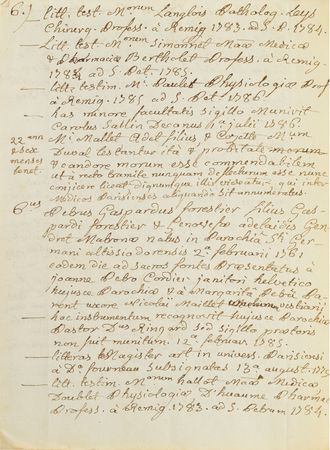 6.) Litt. test. Morum Langlois Patholog. Leys
Chirurg. Profess. à Remig. 1783. ad S. P. 1784.
Litt. test. Morum Simonnel Mae Medicæ
& Pharmaciæ Bertholet Profess. à Remig.
1784 ad S. Pet. 1785.
— litt. testim. Mi Paulet Physiologiæ Prof
à Remig. 1785 ad S. Pet. 1786.
— has minore facultatis sigillo Munivit
Carolus Sallin Decanus 11a julii 1786
22 ann
& sex
menses
habet.
— Mi Mallet Adel filius & Mum
Duval testantur ità & probitate morum
& candore morum esse commendabilem
ut à recto tramite nunquam deflecturum esse nunc
conjicere liceat dignumque illis videatur qui inter
Medicos Parisienses aliquando sit annumeratus.
6us Petrus Gaspardus forestier filius Gas-
pardi forestier & Genovefæ adelaidis Gen
drot Matronæ natus in Parochia Sti Ger
mani altissiodorensis 2a februarii 1761
eodem die ad sacros fontes Præsentatus à
joanne Petro Cordier janitori helvetico
hujusce Parochiæ & à Mariannâ Petrâ Pa-
rent uxore Nicolai Maillet vestiarii
— hoc instrumentum recognovit hujusce Parochiæ
Pastor Dus Ringard sed sigillo prætoris
non fuit munitum. 12a februarii 1785.
— litteras Magister art in univers. Parisiensi
à Do fourneau subsignatas 13a august. 177
— litt. testim. Morum hallot Mae Medicæ
Doublet Physiologiæ D'huaume Pharmac
Profess. à Remig. 1783. ad S. Petrum 1784.